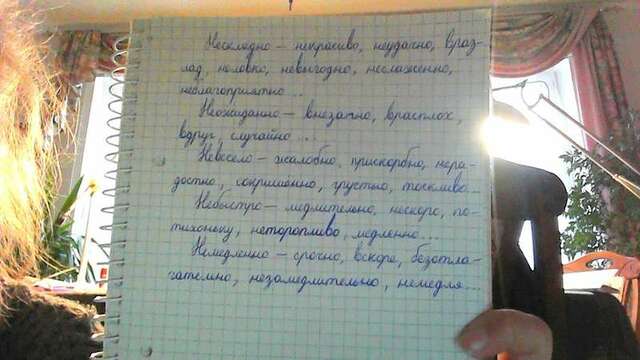 Нескладно – некрасиво, неудачно, враз-
лад, неловко, невыгодно, неслаженно,
неблагоприятно...
Неожиданно – внезапно, врасплох,
вдруг, случайно ...
Невесело – жалобно, прискорбно, нера-
достно, сокрушённо, грустно, тоскливо...
Небыстро – медлительно, нескоро, по-
тихоньку, неторопливо, медленно...
Немедленно – срочно, вскоре, безотла-
гательно, незамедлительно, немедля...